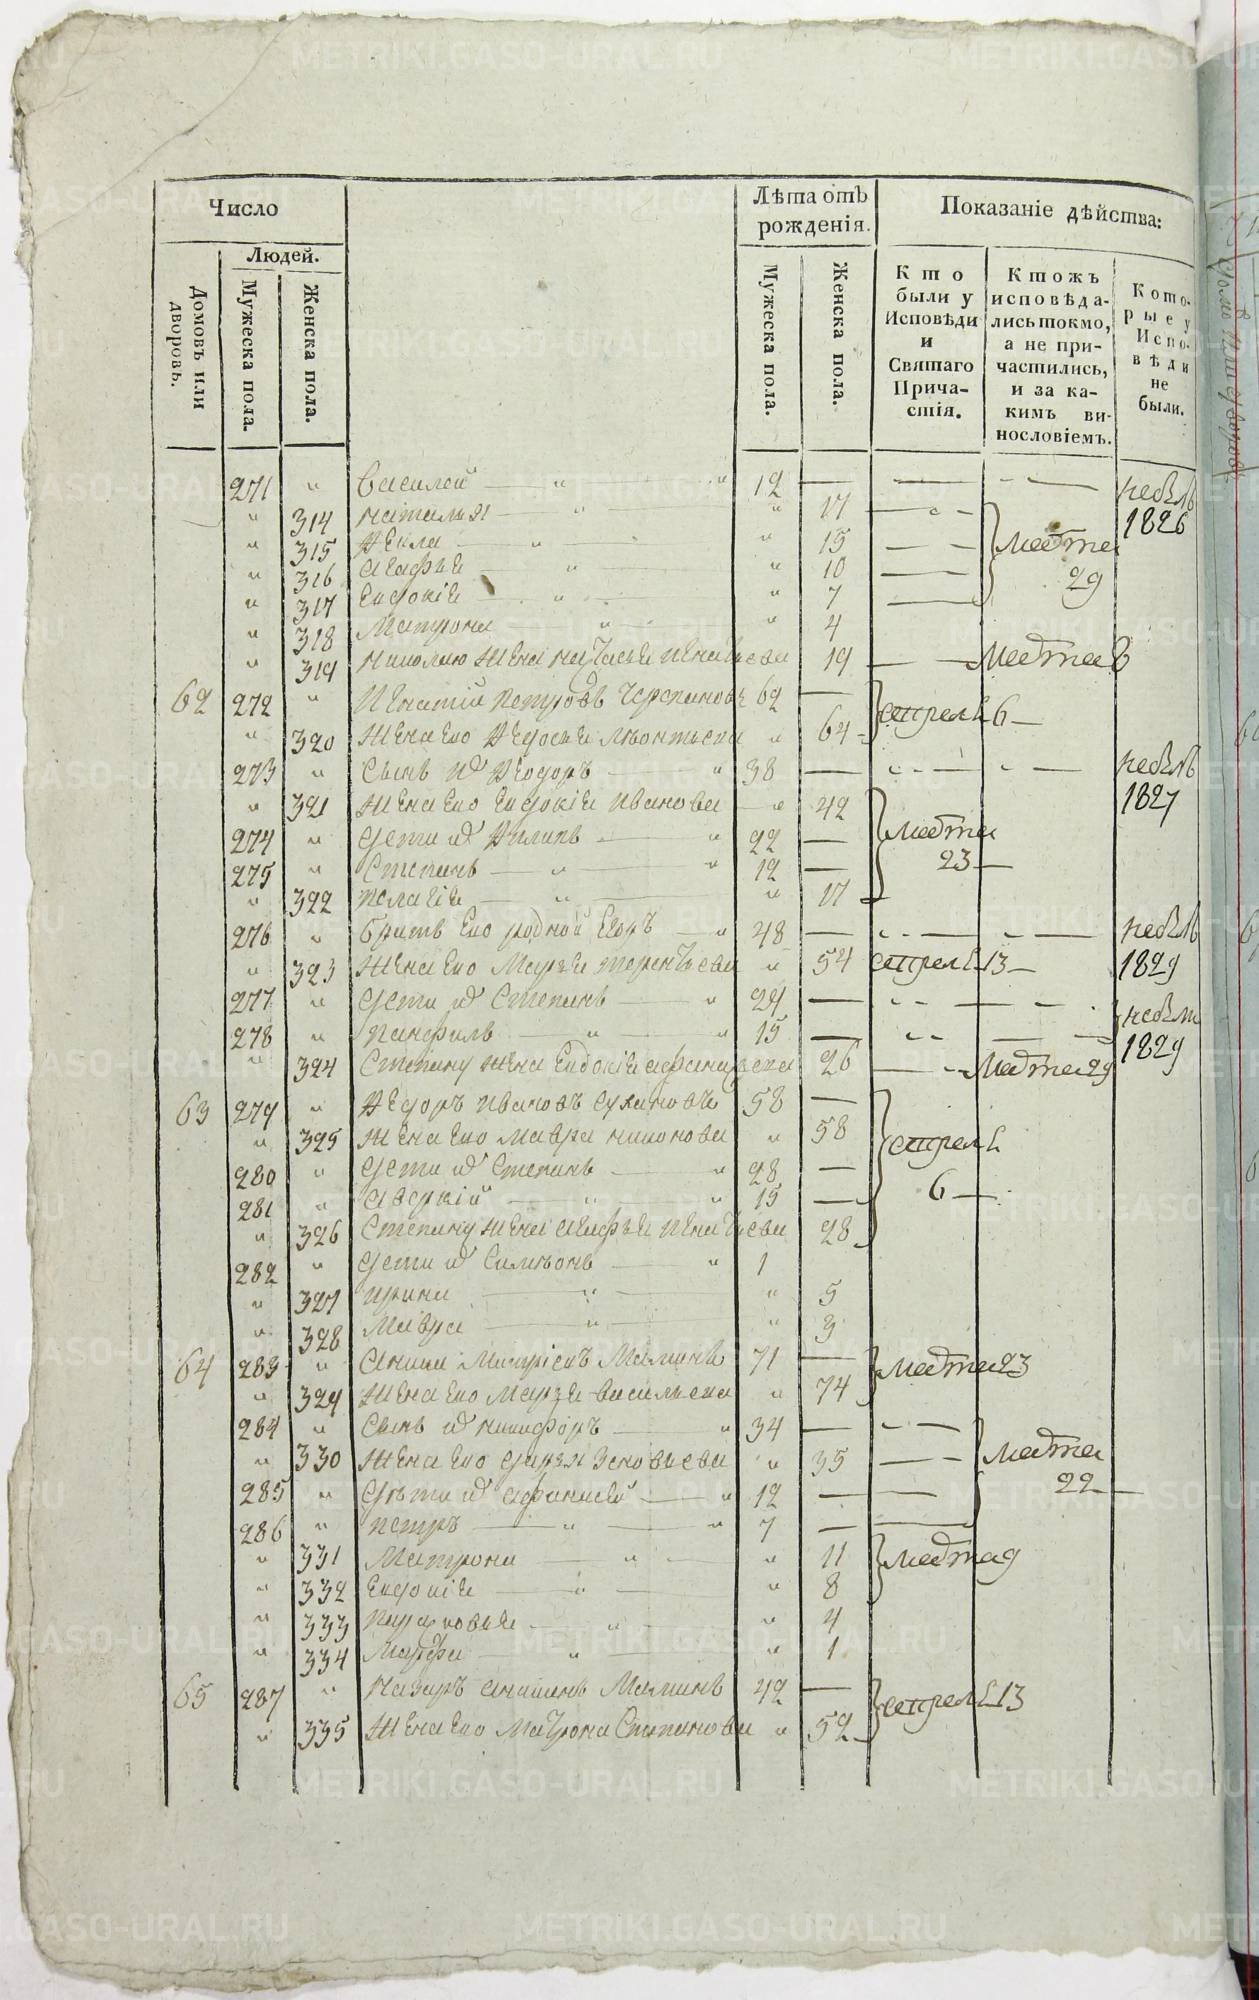 Число
Людей.
Домовъ или дворовъ.
Мужеска пола.
Женска пола.
Лѣта отъ рожденія.
Мужеска пола.
Женска пола.
Показаніе дѣйства:
Кто были у Исповѣди и Святаго Причастія.
Ктожъ исповѣдались токмо, а не причастились, и за какимъ винословіемъ.
Которые у Исповѣди не были.
271 " Василей " " 12 небылъ 1826
" 314 Наталья " " 17
" 315 Ѳекла " " 15 Марта 29
" 316 Агафья " " 10
" 317 Евдокія " " 7
" 318 Матрона " " 4
" 319 жена Игнатьева 19 Марта 8
62 272 " Игнатій Петровъ 62
" 320 Жена его Ѳедосья Леонтьева " 64 апреля 6
273 " Сынъ их Ѳеодоръ " 38 небылъ 1827
" 321 Жена его Евдокія Иванова " 42
274 " Дети их Филипъ " 22 Марта 23
275 " Степанъ " " 12
" 322 Пелагія " " 17
276 " Братъ его родной Егоръ " 48 небылъ 1829
" 323 Жена его Марья Терентьева " 54 апреля 13
277 " Дети их Степанъ " 24
278 " Панфилъ " " 15 1829
" 324 Степану жена Евдокія 26 Марта 29
63 279 " Ѳедоръ Ивановъ 58
" 325 Жена его Мавра " 58 апреля 6
280 " Дети их Степанъ " 28
281 " Аверкій " " 15
" 326 Степану жена Агафья Игнатьева 28
282 " Дети их Симеонъ " 1
" 327 Ирина " " 5
" 328 Мавра " " 3
64 283 " 71 Марта 23
" 329 Жена его Марья Васильева " 74
284 " Сынъ их Никифоръ " 34
" 330 Жена его Дарья Зеновьева " 35 Марта 22
285 " Дѣти их Афанасей " 12
286 " Петръ " " 7
" 331 Матрона " " 11 Марта 9
" 332 Евдокія " " 8
" 333 Парасковья " " 4
" 334 Марфа " " 1
65 287 " Назаръ 49 апреля 13
" 335 Жена его Матрона Степанова " 52
METRIKI.GASO-URAL.RU